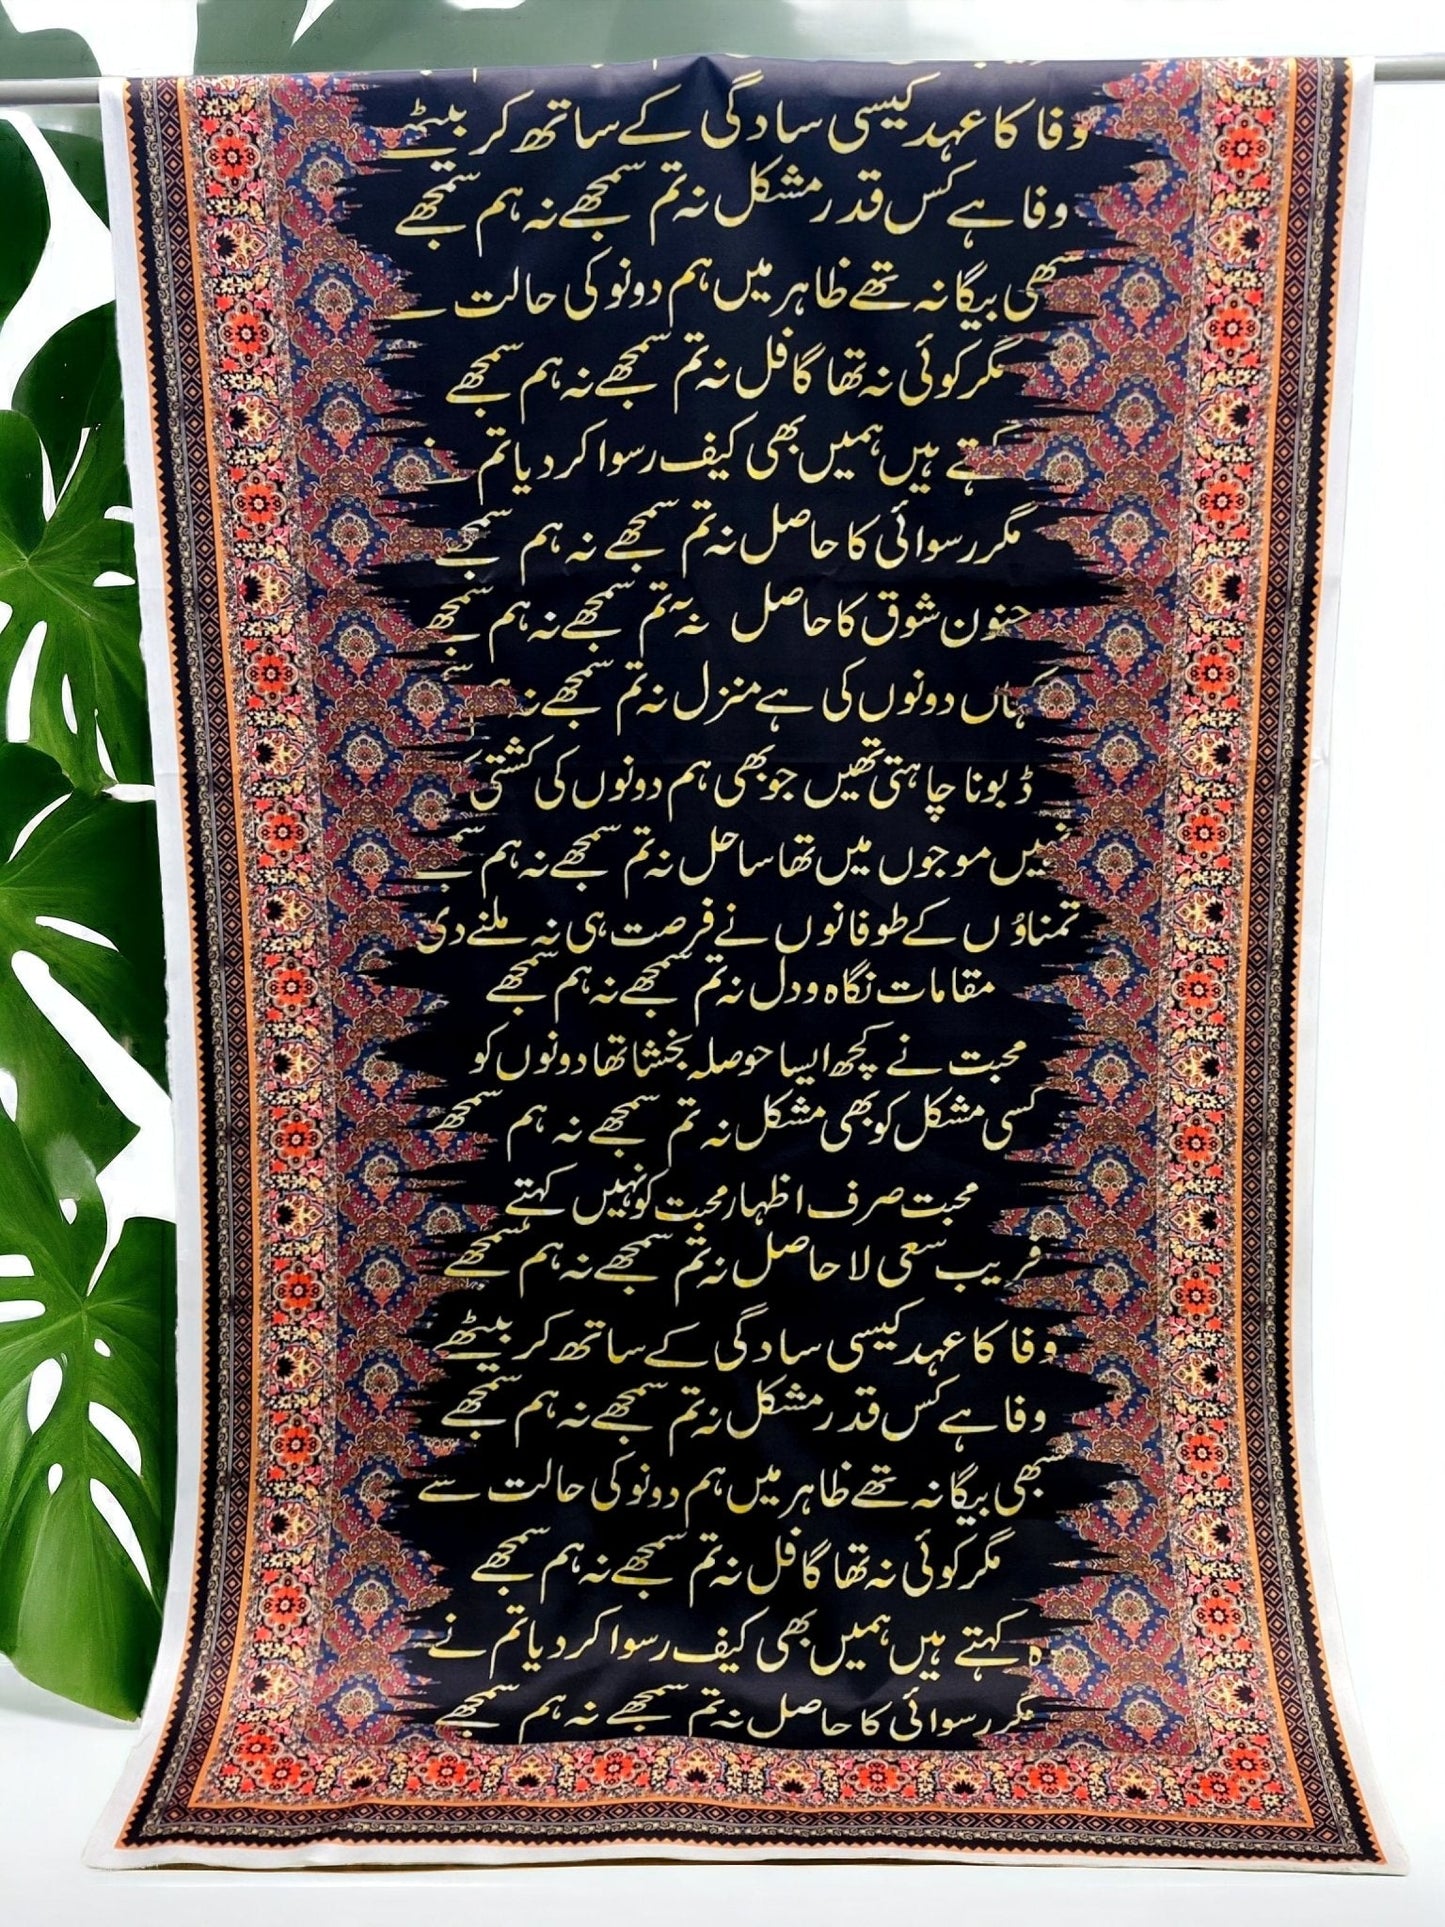 وفا کا عہد کیسی سادگی کے ساتھ کر بیٹھے
وفا ہے کس قدر مشکل نہ تم سمجھے نہ ہم سمجھے
سبھی بیگانہ تھے ظاہر میں ہم دونو کی حالت سے
مگر کوئی نہ تھا گافل نہ تم سمجھے نہ ہم سمجھے
کہتے ہیں ہمیں بھی کیف رسوا کر دیا تم نے
مگر رسوائی کا حاصل نہ تم سمجھے نہ ہم سمجھے
جنون شوق کا حاصل نہ تم سمجھے نہ ہم سمجھے
کہاں دونوں کی ہے منزل نہ تم سمجھے نہ ہم
ڈبونا چاہتی تھیں جو بھی ہم دونوں کی کشتی
نہیں موجوں میں تھا ساحل نہ تم سمجھے نہ ہم
تمناؤں کے طوفانوں نے فرصت ہی نہ ملنے دی
مقامات نگاہ و دل نہ تم سمجھے نہ ہم سمجھے
محبت نے کچھ ایسا حوصلہ بخشا تھا دونوں کو
کسی مشکل کو بھی مشکل نہ تم سمجھے نہ ہم سمجھے
محبت صرف اظہار محبت کو نہیں کہتے
فریب سعی لا حاصل نہ تم سمجھے نہ ہم سمجھے
وفا کا عہد کیسی سادگی کے ساتھ کر بیٹھے
وفا ہے کس قدر مشکل نہ تم سمجھے نہ ہم سمجھے
سبھی بیگانہ تھے ظاہر میں ہم دونو کی حالت سے
مگر کوئی نہ تھا گافل نہ تم سمجھے نہ ہم سمجھے
کہتے ہیں ہمیں بھی کیف رسوا کر دیا تم نے
مگر رسوائی کا حاصل نہ تم سمجھے نہ ہم سمجھے